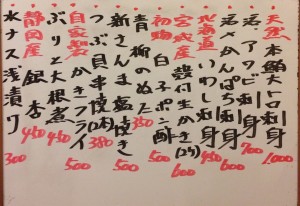 天然 本鮪大トロ刺身 1,000
活〆アワビ刺身 700
活〆かんぱち刺身 450
北海道 いわし刺身 600
宮城産 殻付生かき(2ケ) 600
初物 白子ポン酢 500
青柳のぬた 350
新さんま塩焼き 500
つぶ貝串焼(2本) 380
自家製 かきフライ 500
ぶりと大根煮 450
静岡産 銀杏 450
水ナス浅漬け 300